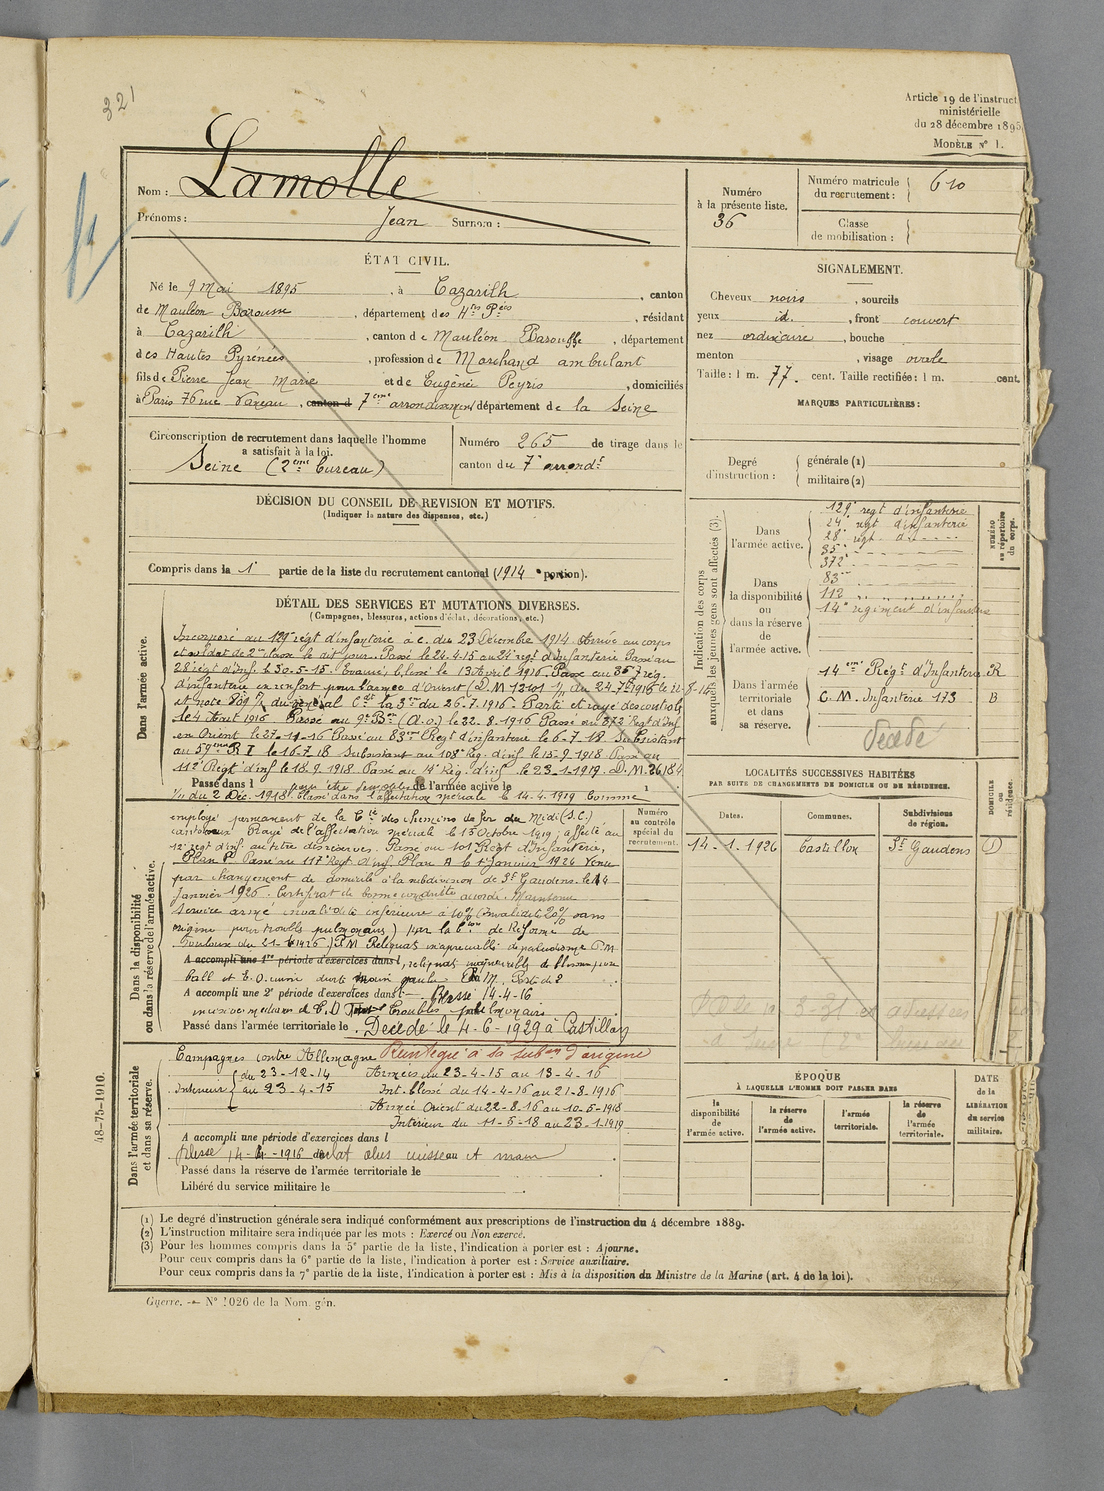 321
Article 19 de l'instruct
ministérielle
du 28 décembre 1895
MODÈLE N° 1.
Nom : Lamolle
Prénoms : Jean Surnom :
Numéro
à la présente liste.
36
Numéro matricule
du recrutement : 610
Classe
de mobilisation :
ÉTAT CIVIL.
Né le 9 Mai 1895, à Cazarilh, canton
de Mauléon Barousse, département des Htes Pées, résidant
à Cazarilh, canton de Mauléon Barousse, département
des Hautes Pyrénées, profession de Marchand ambulant
fils de Pierre Jean Marie et de Eugénie Peyris, domiciliés
à Paris 76 rue Vaneau, canton d 7eme arrondissement département de la Seine
SIGNALEMENT.
Cheveux noirs, sourcils
yeux id., front couvert
nez ordinaire, bouche
menton, visage ovale
Taille : 1 m. 77. cent. Taille rectifiée : 1 m. cent.
MARQUES PARTICULIÈRES :
Circonscription de recrutement dans laquelle l'homme
a satisfait à la loi.
Seine (2eme bureau)
Numéro 265 de tirage dans le
canton du 7e arrondt
Degré
d'instruction :
générale (1)
militaire (2)
DÉCISION DU CONSEIL DE REVISION ET MOTIFS.
(Indiquer la nature des dispenses, etc.)
Compris dans la 1e partie de la liste du recrutement cantonal (1914 portion).
Indication des corps
auxquels les jeunes gens sont affectés (3).
NUMÉRO
au répertoire
du corps.
Dans
l'armée active.
129e regt d'infanterie
24e regt d'infanterie
28e regt d
35e
372e
Dans
la disponibilité
ou
dans la réserve
de
l'armée active.
83e
112
14e regiment d'infanterie
Dans l'armée
territoriale
et dans
sa réserve.
14eme Régt d'Infanterie R
C. M. Infanterie 173 B
Décédé
DÉTAIL DES SERVICES ET MUTATIONS DIVERSES.
(Campagnes, blessures, actions d'éclat, décorations, etc.)
Dans l'armée active.
Incorporé au 129e régt d'infanterie à c. du 23 Décembre 1914 Arrivé au corps
et soldat de 2me classe le dit jour. Passé le 24.4.15 au 24e regt d'Infanterie Passé au
28e régt d'Inf. le 30-5-15. Evacué, blessé le 13 Avril 1916. Passé au 35e rég.
d'infanterie en renfort pour l'armée d'Orient (D.M 13401 1/1 du 24-7-1916
du général Ct la 3me du 26.7.1916. Parti et rayé des controles
le 4 Aout 1916 Passé au 9e Bon (A.O.) le 22.8.1916 Passé au 372e Regt d'Inf
en Orient le 27-11-16 Passé au 83eme Regt d'infanterie le 6-7-18 Subsistant
au 59eme R I le 16-7-18 Subsistant au 108e Reg. d'inf. le 15-9-1918 Passé au
112e Regt d'inf le 18.9.1918. Passé au 14e Rég. d'inf. le 23-1-1919. D.M. 26184
Passé dans l de l'armée active le
1/11 du 2 Déc. 1918. Classé dans l'affectation spéciale le 14.4.1919 Comme
Numéro
au contrôle
spécial du
recrutement.
Dans la disponibilité
ou dans la réserve de l'armée active.
employé permanent de la Cie des Chemins de fer du Midi (S.C.)
cantonnier Rayé de l'affectation spéciale le 15 Octobre 1919 ; affecté au
12e regt d'inf. au titre des réserves. Passé au 101e Regt d'Infanterie,
Plan P. Passé au 117e Regt d'inf. Plan A le 1er Janvier 1926 Venu
par changement de domicile à la subdivision de St Gaudens le 14
Janvier 1926. Certificat de bonne conduite accordé. Maintenu
service armé invalidité inférieure à 10% (invalidité 20% sans
origine pour troubles pulmonaires) par la Con de Réforme de
Toulouse du
A accompli une 1re période d'exercices dans l
A accompli une 2e période d'exercices dans l Blessé 14-4-16
Passé dans l'armée territoriale le . Décédé le 4-6-1929 à Castillon
LOCALITÉS SUCCESSIVES HABITÉES
PAR SUITE DE CHANGEMENTS DE DOMICILE OU DE RÉSIDENCE.
Dates. Communes. Subdivisions
de région.
DOMICILE
ou
résidence.
14.1.1926 Castillon St Gaudens D
Dans l'armée territoriale
et dans sa réserve.
Campagnes contre Allemagne Réintégré à sa subon d'origine
Intérieur du 23-12-14 Armées du 23-4-15 au 13-4-16
au 23-4-15 Int. blessé du 14-4-16 au 21-8-1916
Armée Orient du 22-8-16 au 10-5-1918
Intérieur du 11-5-18 au 23-1-1919
A accompli une période d'exercices dans l
Blessé 14-4-1916 éclat obus cuisseau et main
Passé dans la réserve de l'armée territoriale le
Libéré du service militaire le
ÉPOQUE
À LAQUELLE L'HOMME DOIT PASSER DANS
la
disponibilité
de
l'armée active.
la réserve
de
l'armée active.
l'armée
territoriale.
la réserve
de
l'armée
territoriale.
DATE
de la
LIBÉRATION
du service
militaire.
48-75-1910.
(1) Le degré d'instruction générale sera indiqué conformément aux prescriptions de l'instruction du 4 décembre 1889.
(2) L'instruction militaire sera indiquée par les mots : Exercé ou Non exercé.
(3) Pour les hommes compris dans la 5e partie de la liste, l'indication à porter est : Ajourné.
Pour ceux compris dans la 6e partie de la liste, l'indication à porter est : Service auxiliaire.
Pour ceux compris dans la 7e partie de la liste, l'indication à porter est : Mis à la disposition du Ministre de la Marine (art. 4 de la loi).
Guerre. — N° 1026 de la Nom. gén.